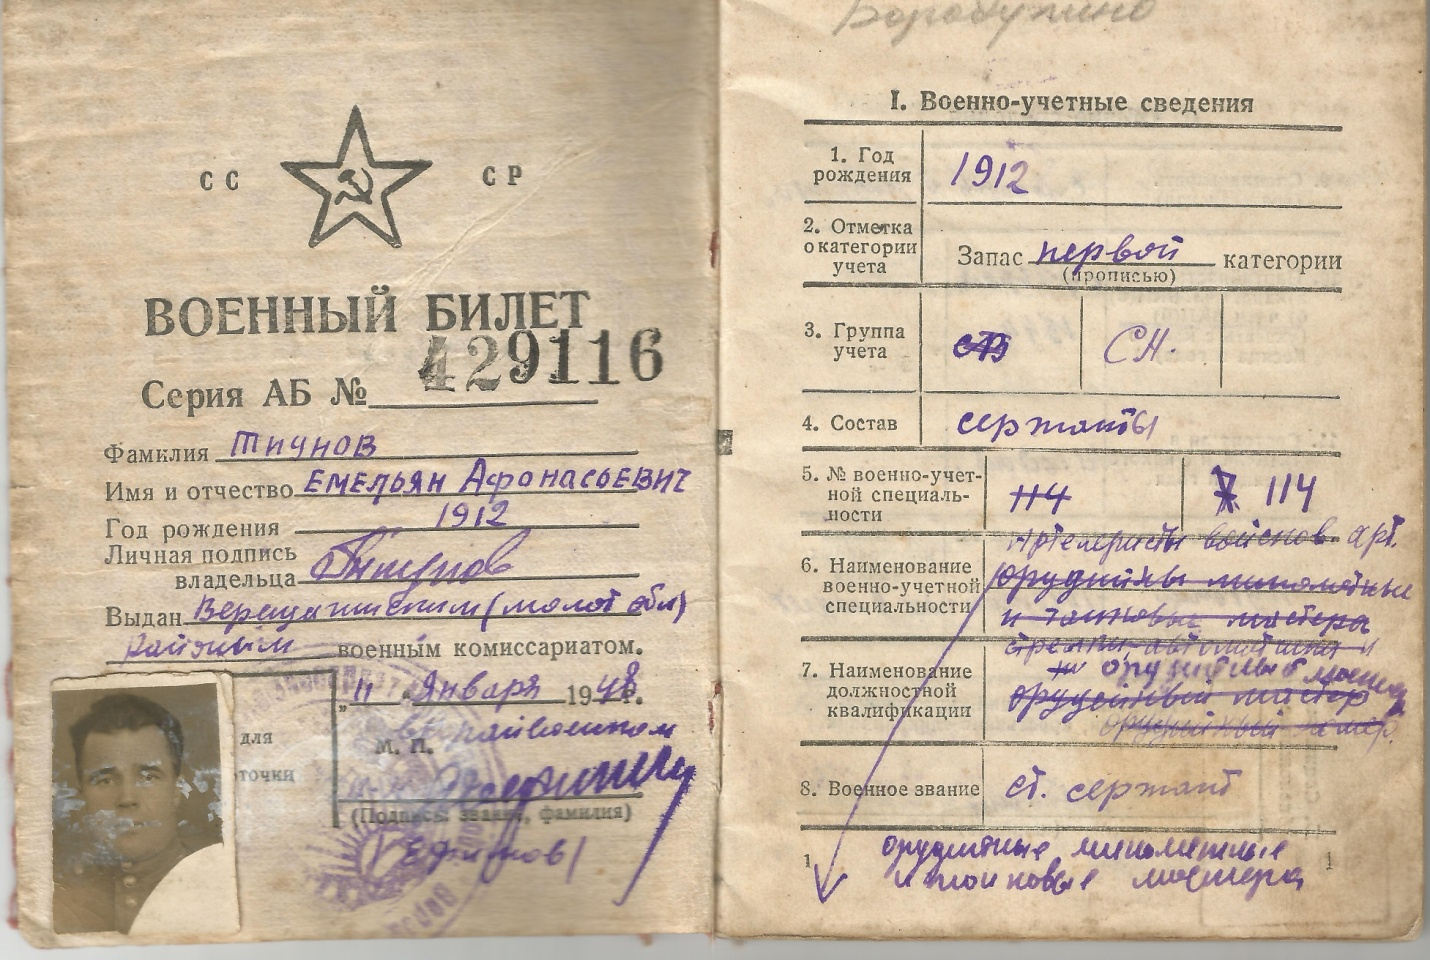 СС СР
ВОЕННЫЙ БИЛЕТ
429116
Серия АБ №
Фамилия Тиунов
Имя и отчество Емельян Афонасьевич
Год рождения 1912
Личная подпись
владельца Тиунов
Выдан Верещагинским (молот обл)
районым военным комиссариатом.
"11" Января 1948 г.
для
М. П.
точки
(Подпись звание, фамилия)
I. Военно-учетные сведения
1. Год
рождения
1912
2. Отметка
о категории
учета
Запас первой категории
(прописью)
3. Группа
учета
СВ
СН.
4. Состав
сержанты
5. № военно-учет-
ной специаль-
ности
114
7 114
6. Наименование
военно-учетной
специальности
орудийны минометные
и танковы мастера
7. Наименование
должностной
квалификации
орудийный мастер
орудийный мастер
8. Военное звание
ст. сержант
орудийные минометные
и танковые мастера
1
1